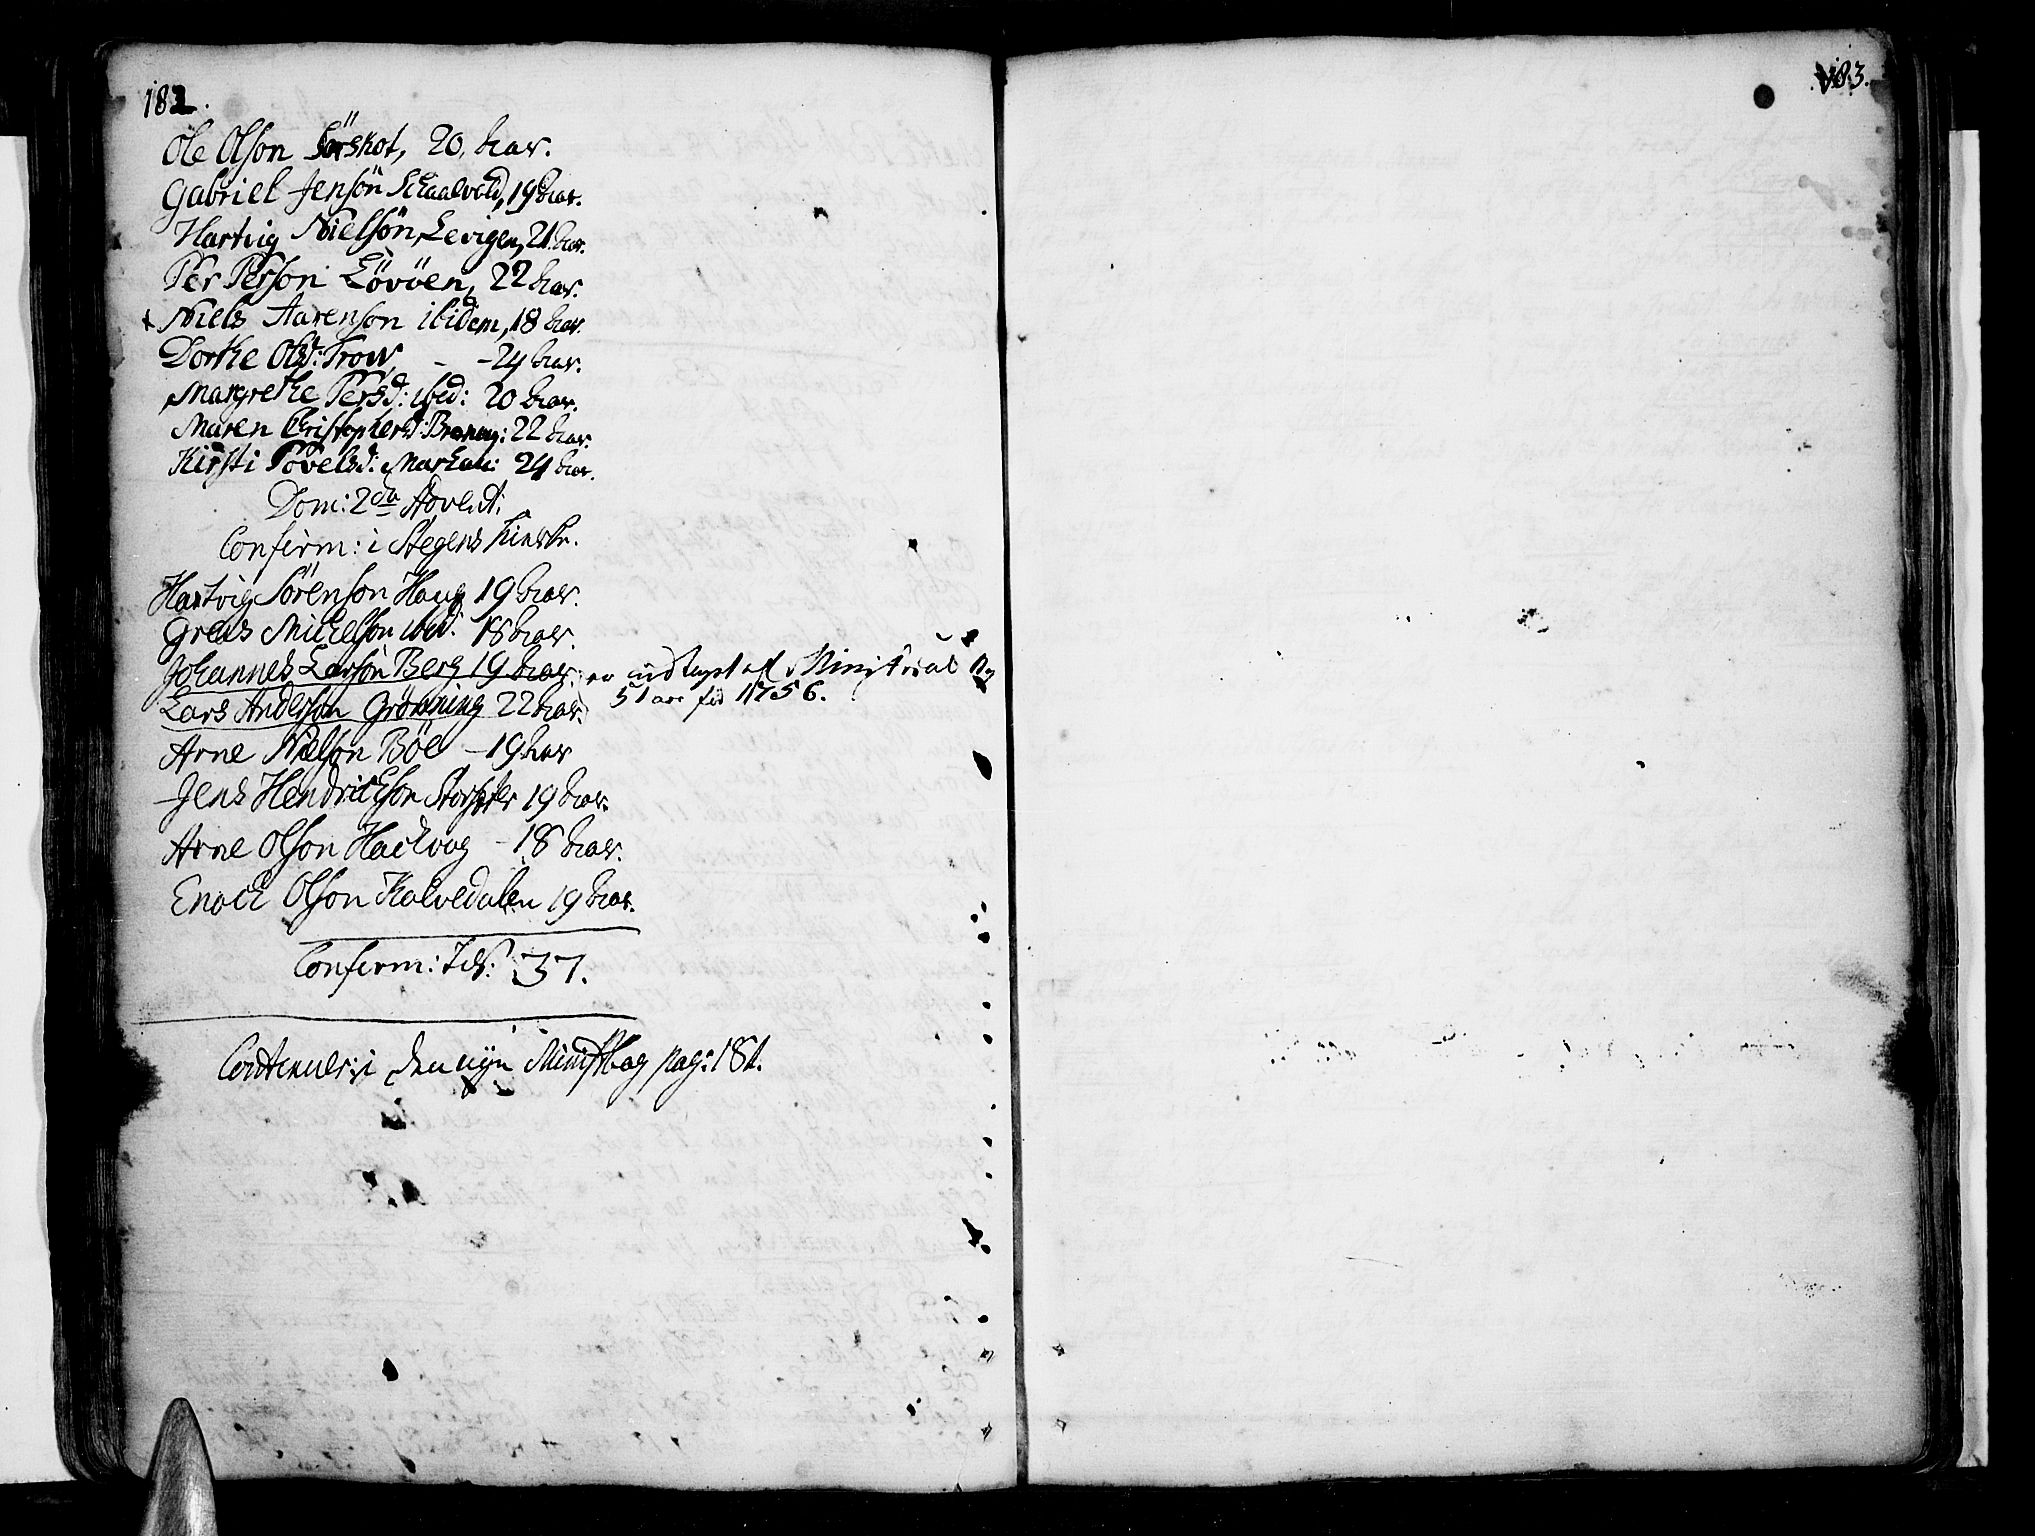 182.
Ole Olson Sörskot, 20. aar.
Gabriel Jensön Schaalvold, 19 aar.
Hartvig Nielsön, Levigen, 21 aar.
Per Person Lövöen, 22 aar.
Niels Aarenson ibidem, 18 aar.
Dorthe Olsd: Trow, - - 24 aar.
Margrethe Persd: ibid: 20 aar.
Maren Christophersd: 22 aar.
Kirsti Povelsd: 24 aar.
Dom: 2da Advent:
Confirm: i Stegens Kirke.
Hartvig Sörenson Haug 19 aar.
Grels Michelson ibid. 18 aar.
Johannes Larsön Berg 19 aar. er indtagt af Ministrial
Lars Anderson Grönning 22 aar. 1756.
Arne Nielson Böe - 19 aar
Jens Hendrichson Storseter 19 aar.
Arne Olson Hachvog - 18 aar.
Enoch Olson Kalvedalen 19 aar.
Confirm: 37.
Continuer: i den nÿe Minist: bog pag: 181.
183.